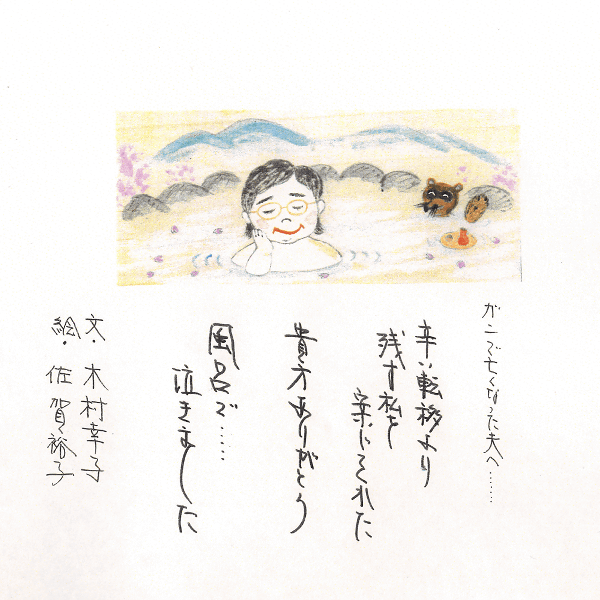 ガンで亡くなった夫へ……
辛い転移より
残す私を
案じてくれた
貴方ありがとう
風呂で……
泣きました
文・木村幸子
絵・佐賀裕子